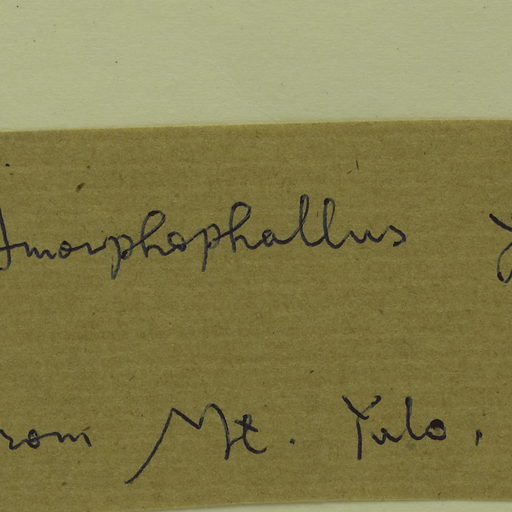 Amorphophallus y
rom Mt. Yulo.